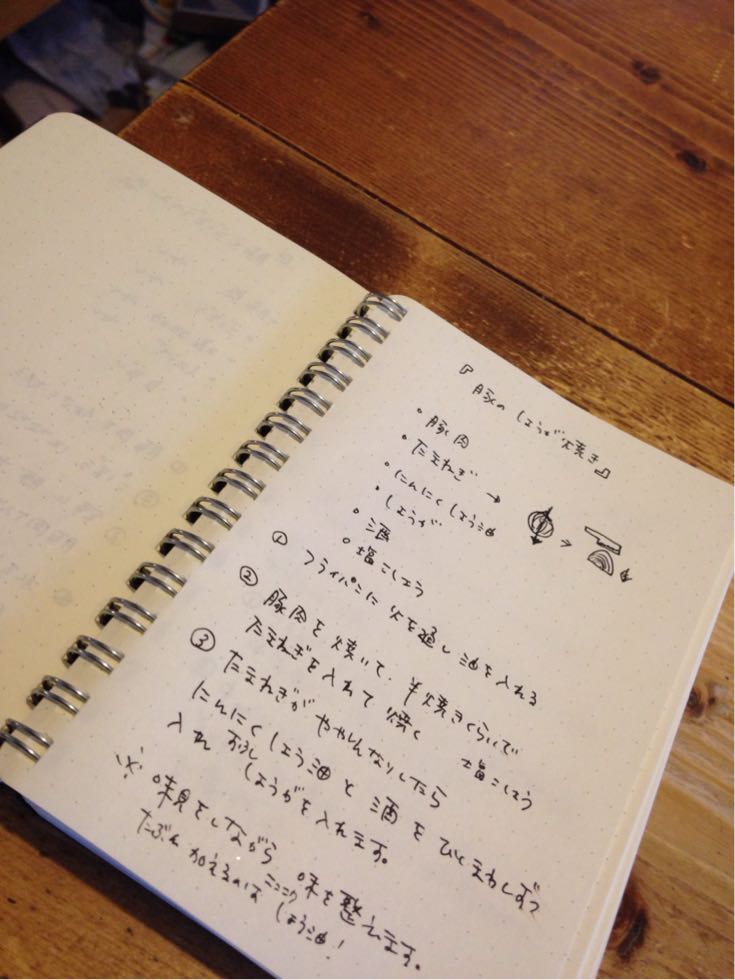 『豚のしょうが焼き』
・豚肉
・たまねぎ →
・にんにくしょう油
・しょうが
・酒
・塩こしょう
① フライパンに火を通し油を入れる
② 豚肉を焼いて、半焼きくらいで
たまねぎを入れて焼く 塩こしょう
③ たまねぎがややしんなりしたら
にんにくしょう油と酒をひとまわしずつ
入れ おろししょうがを入れます。
※ 味見をしながら味を整えます。
たぶん加えるのはニンニクしょう油!